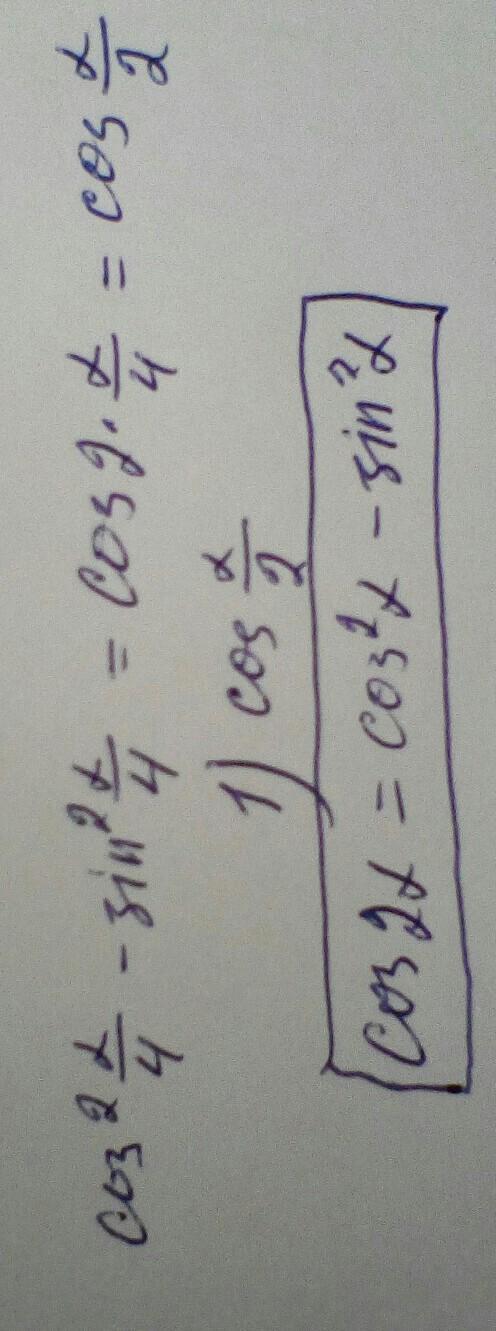 cos² α/4 - sin² α/4 = cos 2·α/4 = cos α/2
1) cos α/2
cos 2α = cos²α - sin²α